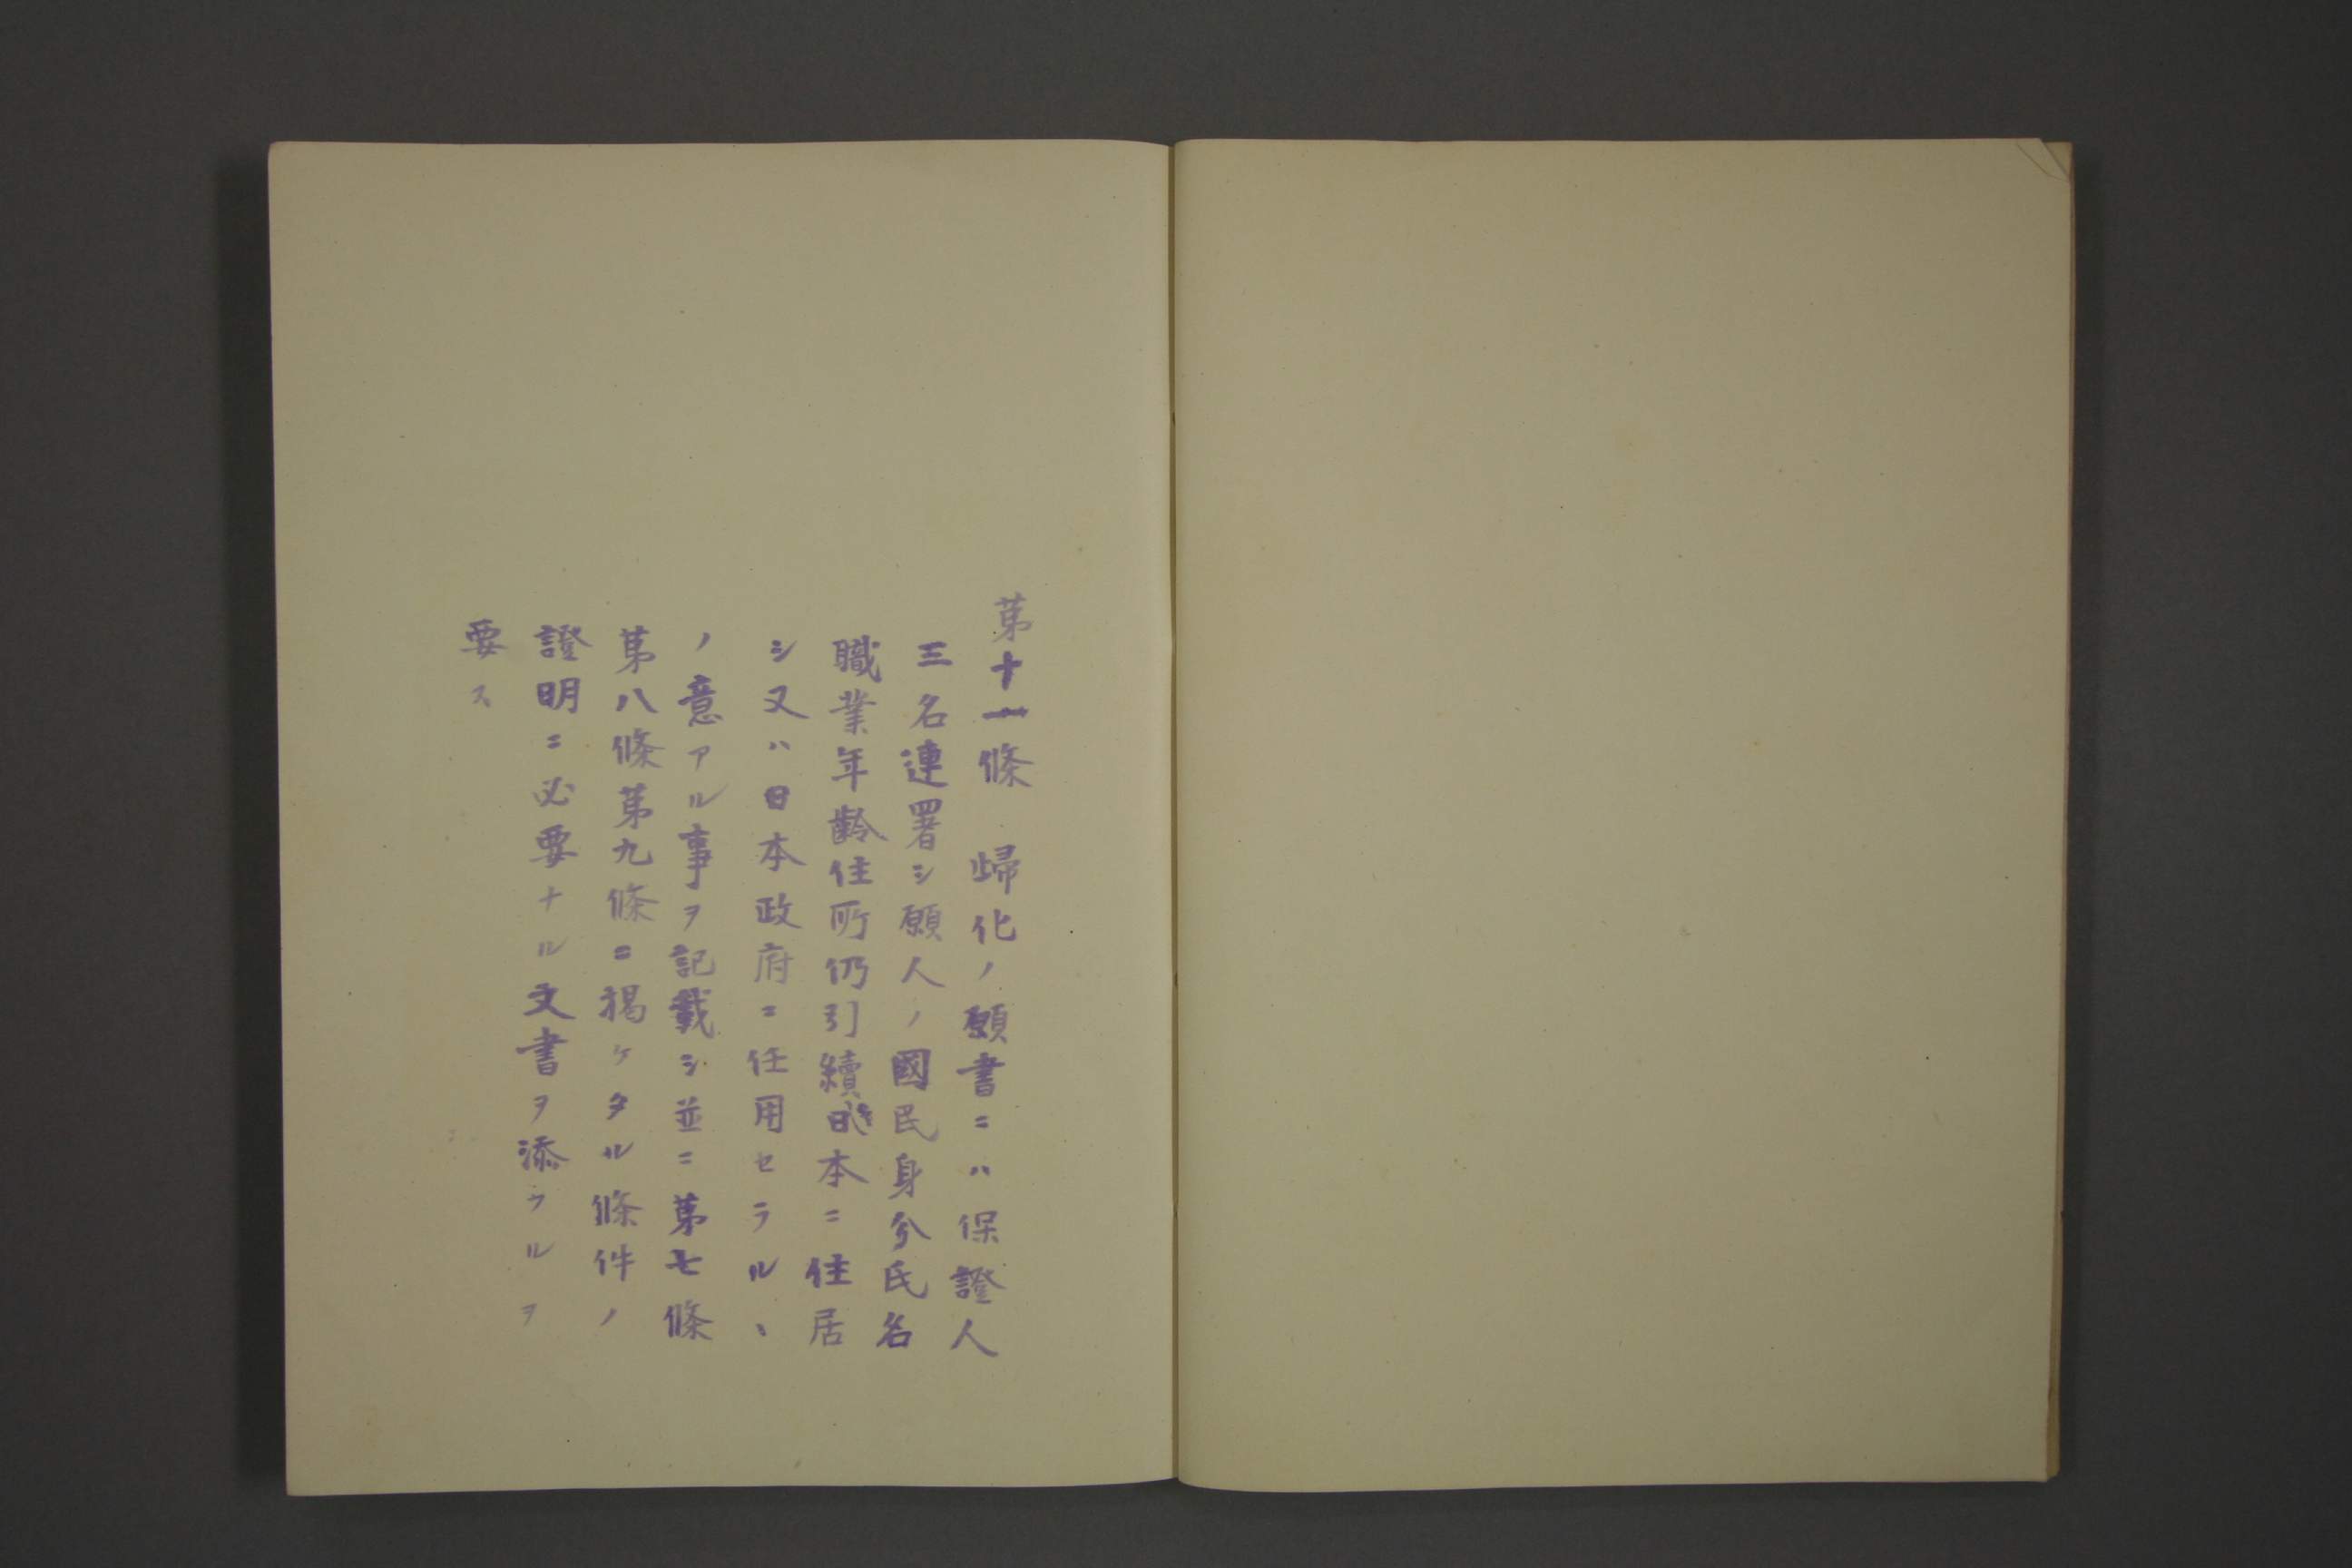 第十一條　歸化ノ願書ニハ保證人
三名連署シ願人ノ國民身分氏名
職業年齡住所仍引續キ日本ニ住居
シ又ハ日本政府ニ任用セラルヽ
ノ意アル事ヲ記載シ並ニ第七條
第八條第九條ニ掲ケタル條件ノ
證明ニ必要ナル文書ヲ添ヅルヲ
要ス